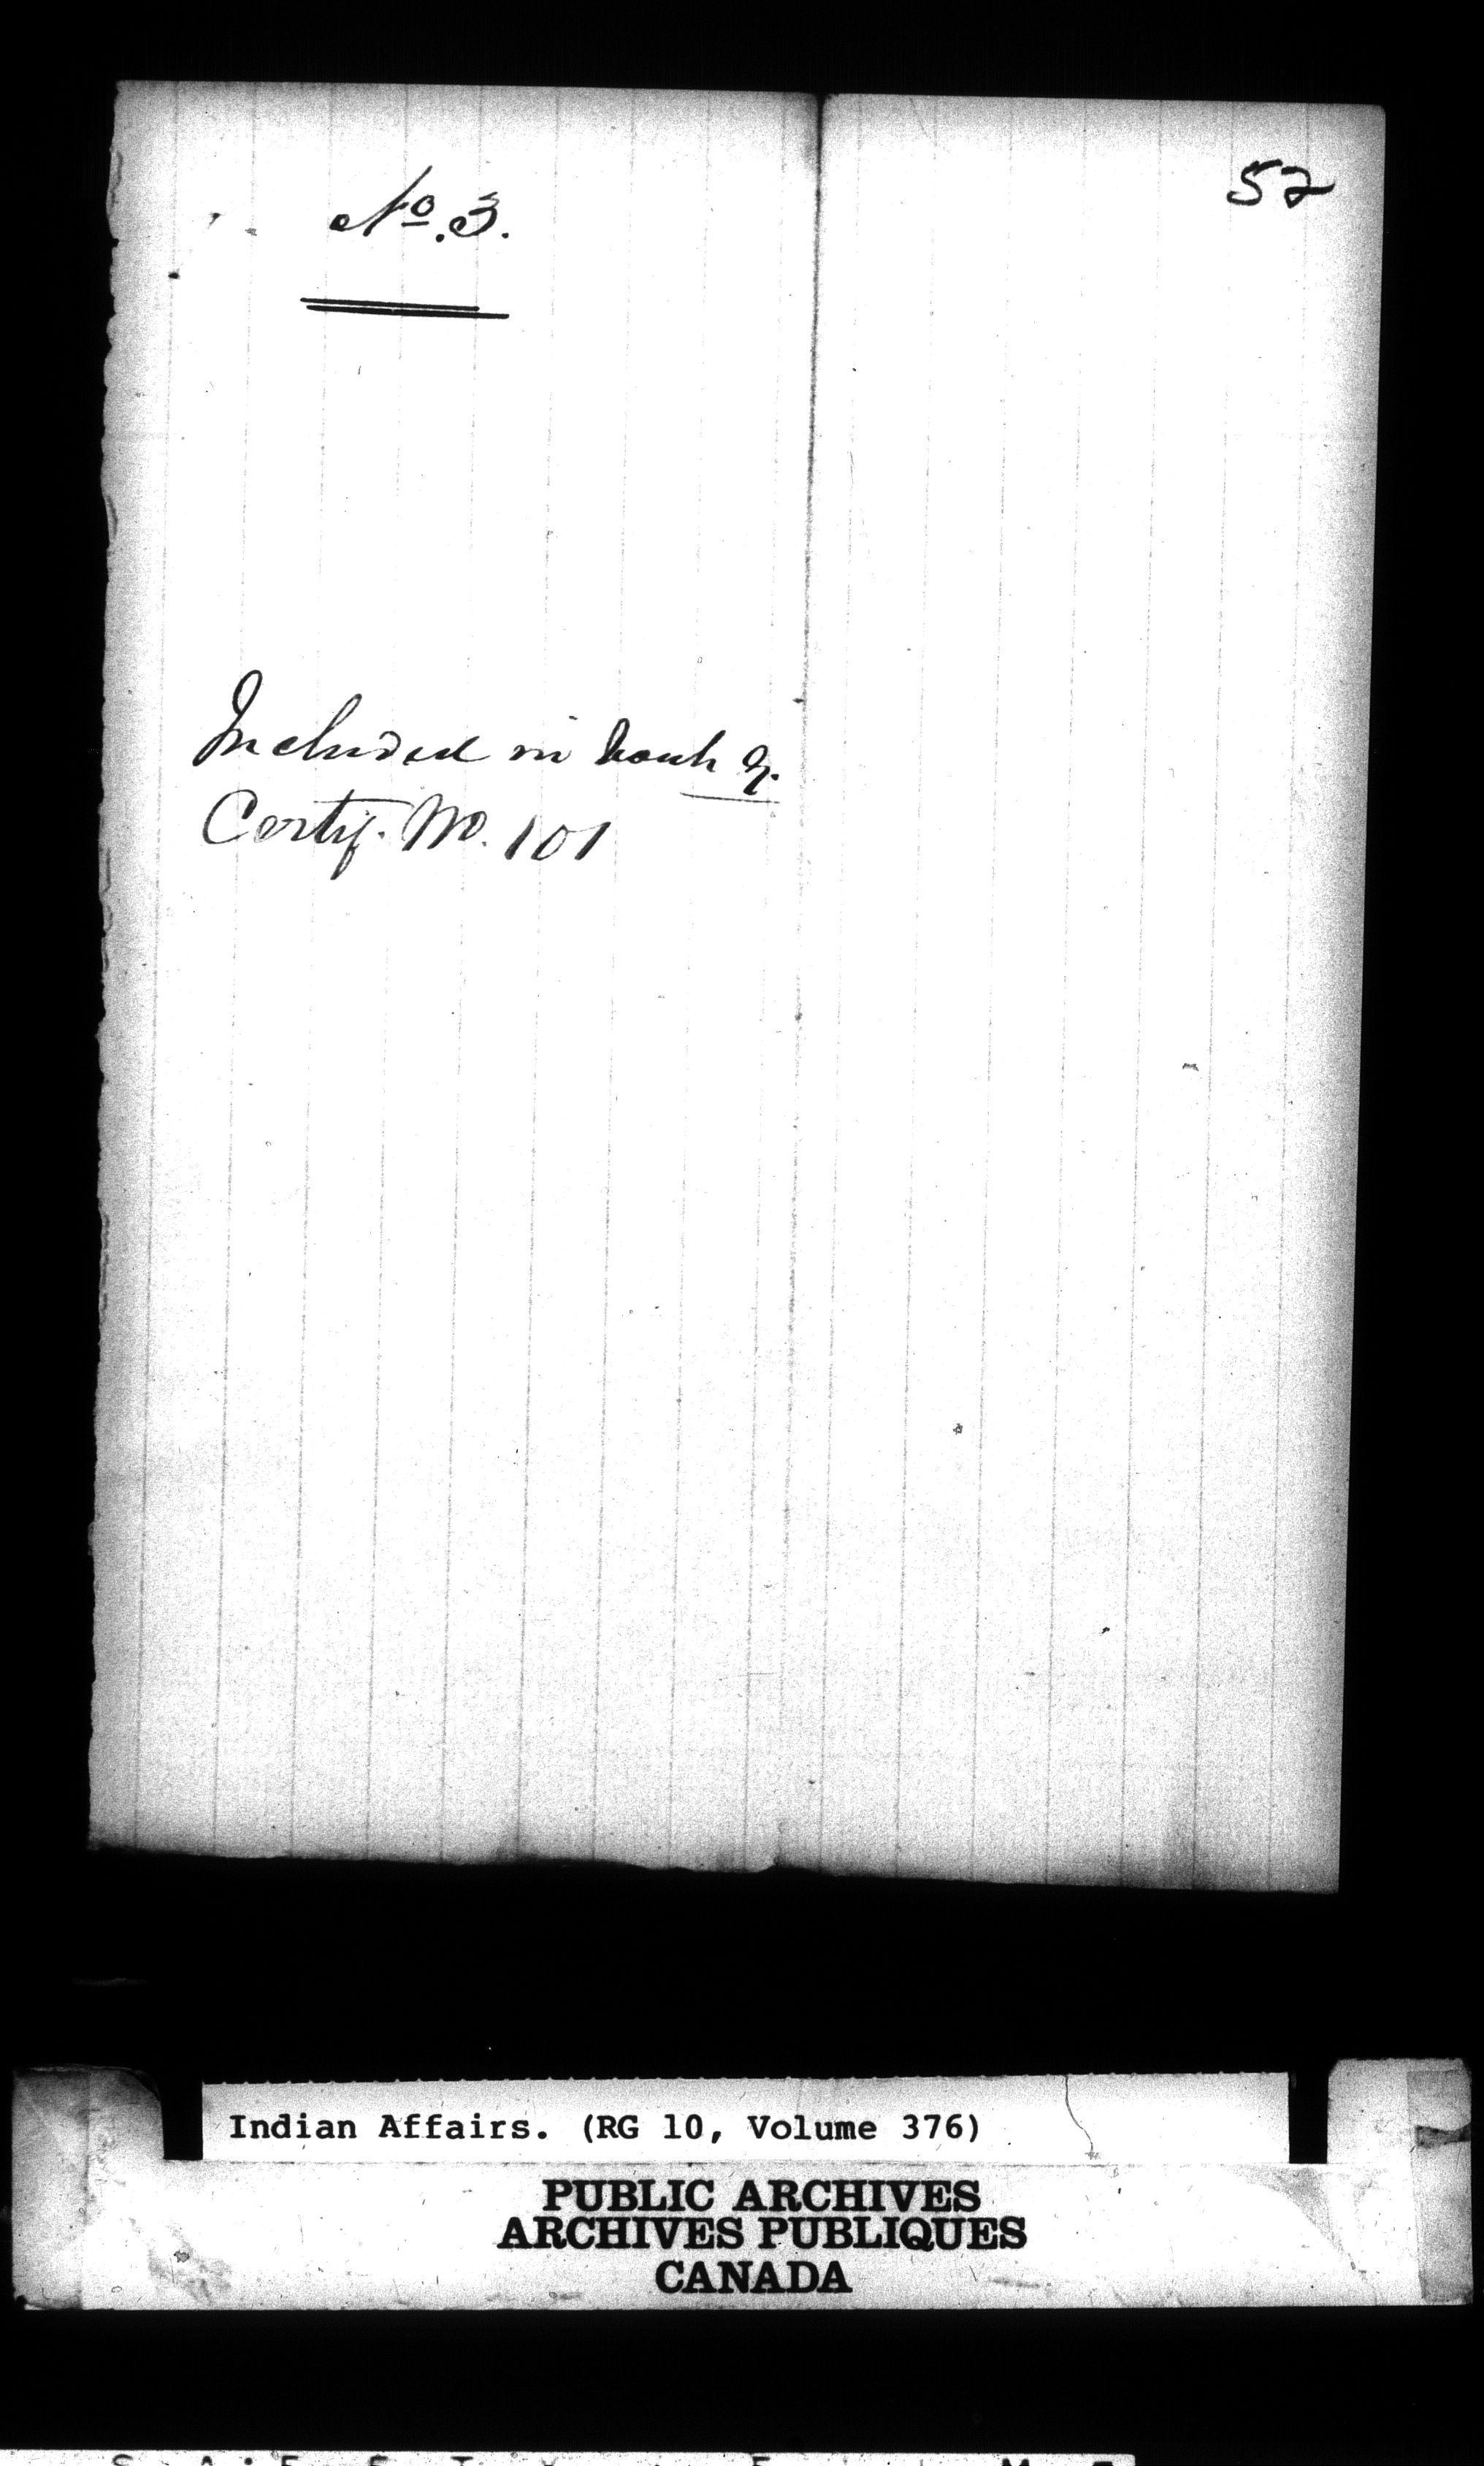 52
No. 3.
Included in bank
Certif. No. 101
Indian Affairs. (RG 10, Volume 376)
PUBLIC ARCHIVES
ARCHIVES PUBLIQUES
CANADA